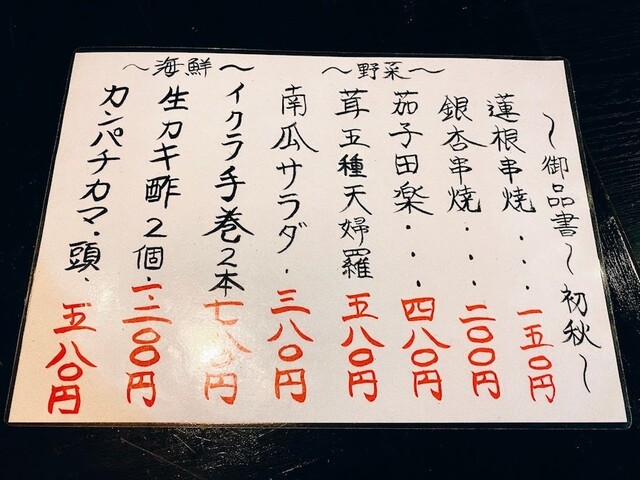 〜御品書〜初秋〜
〜野菜〜
蓮根串焼・・・一五〇円
銀杏串焼・・・二〇〇円
茄子田楽・・・四八〇円
茸五種天婦羅 五八〇円
南瓜サラダ・三八〇円
〜海鮮〜
イクラ手巻2本 七八〇円
生カキ酢2個・一、二〇〇円
カンパチカマ・頭・五八〇円